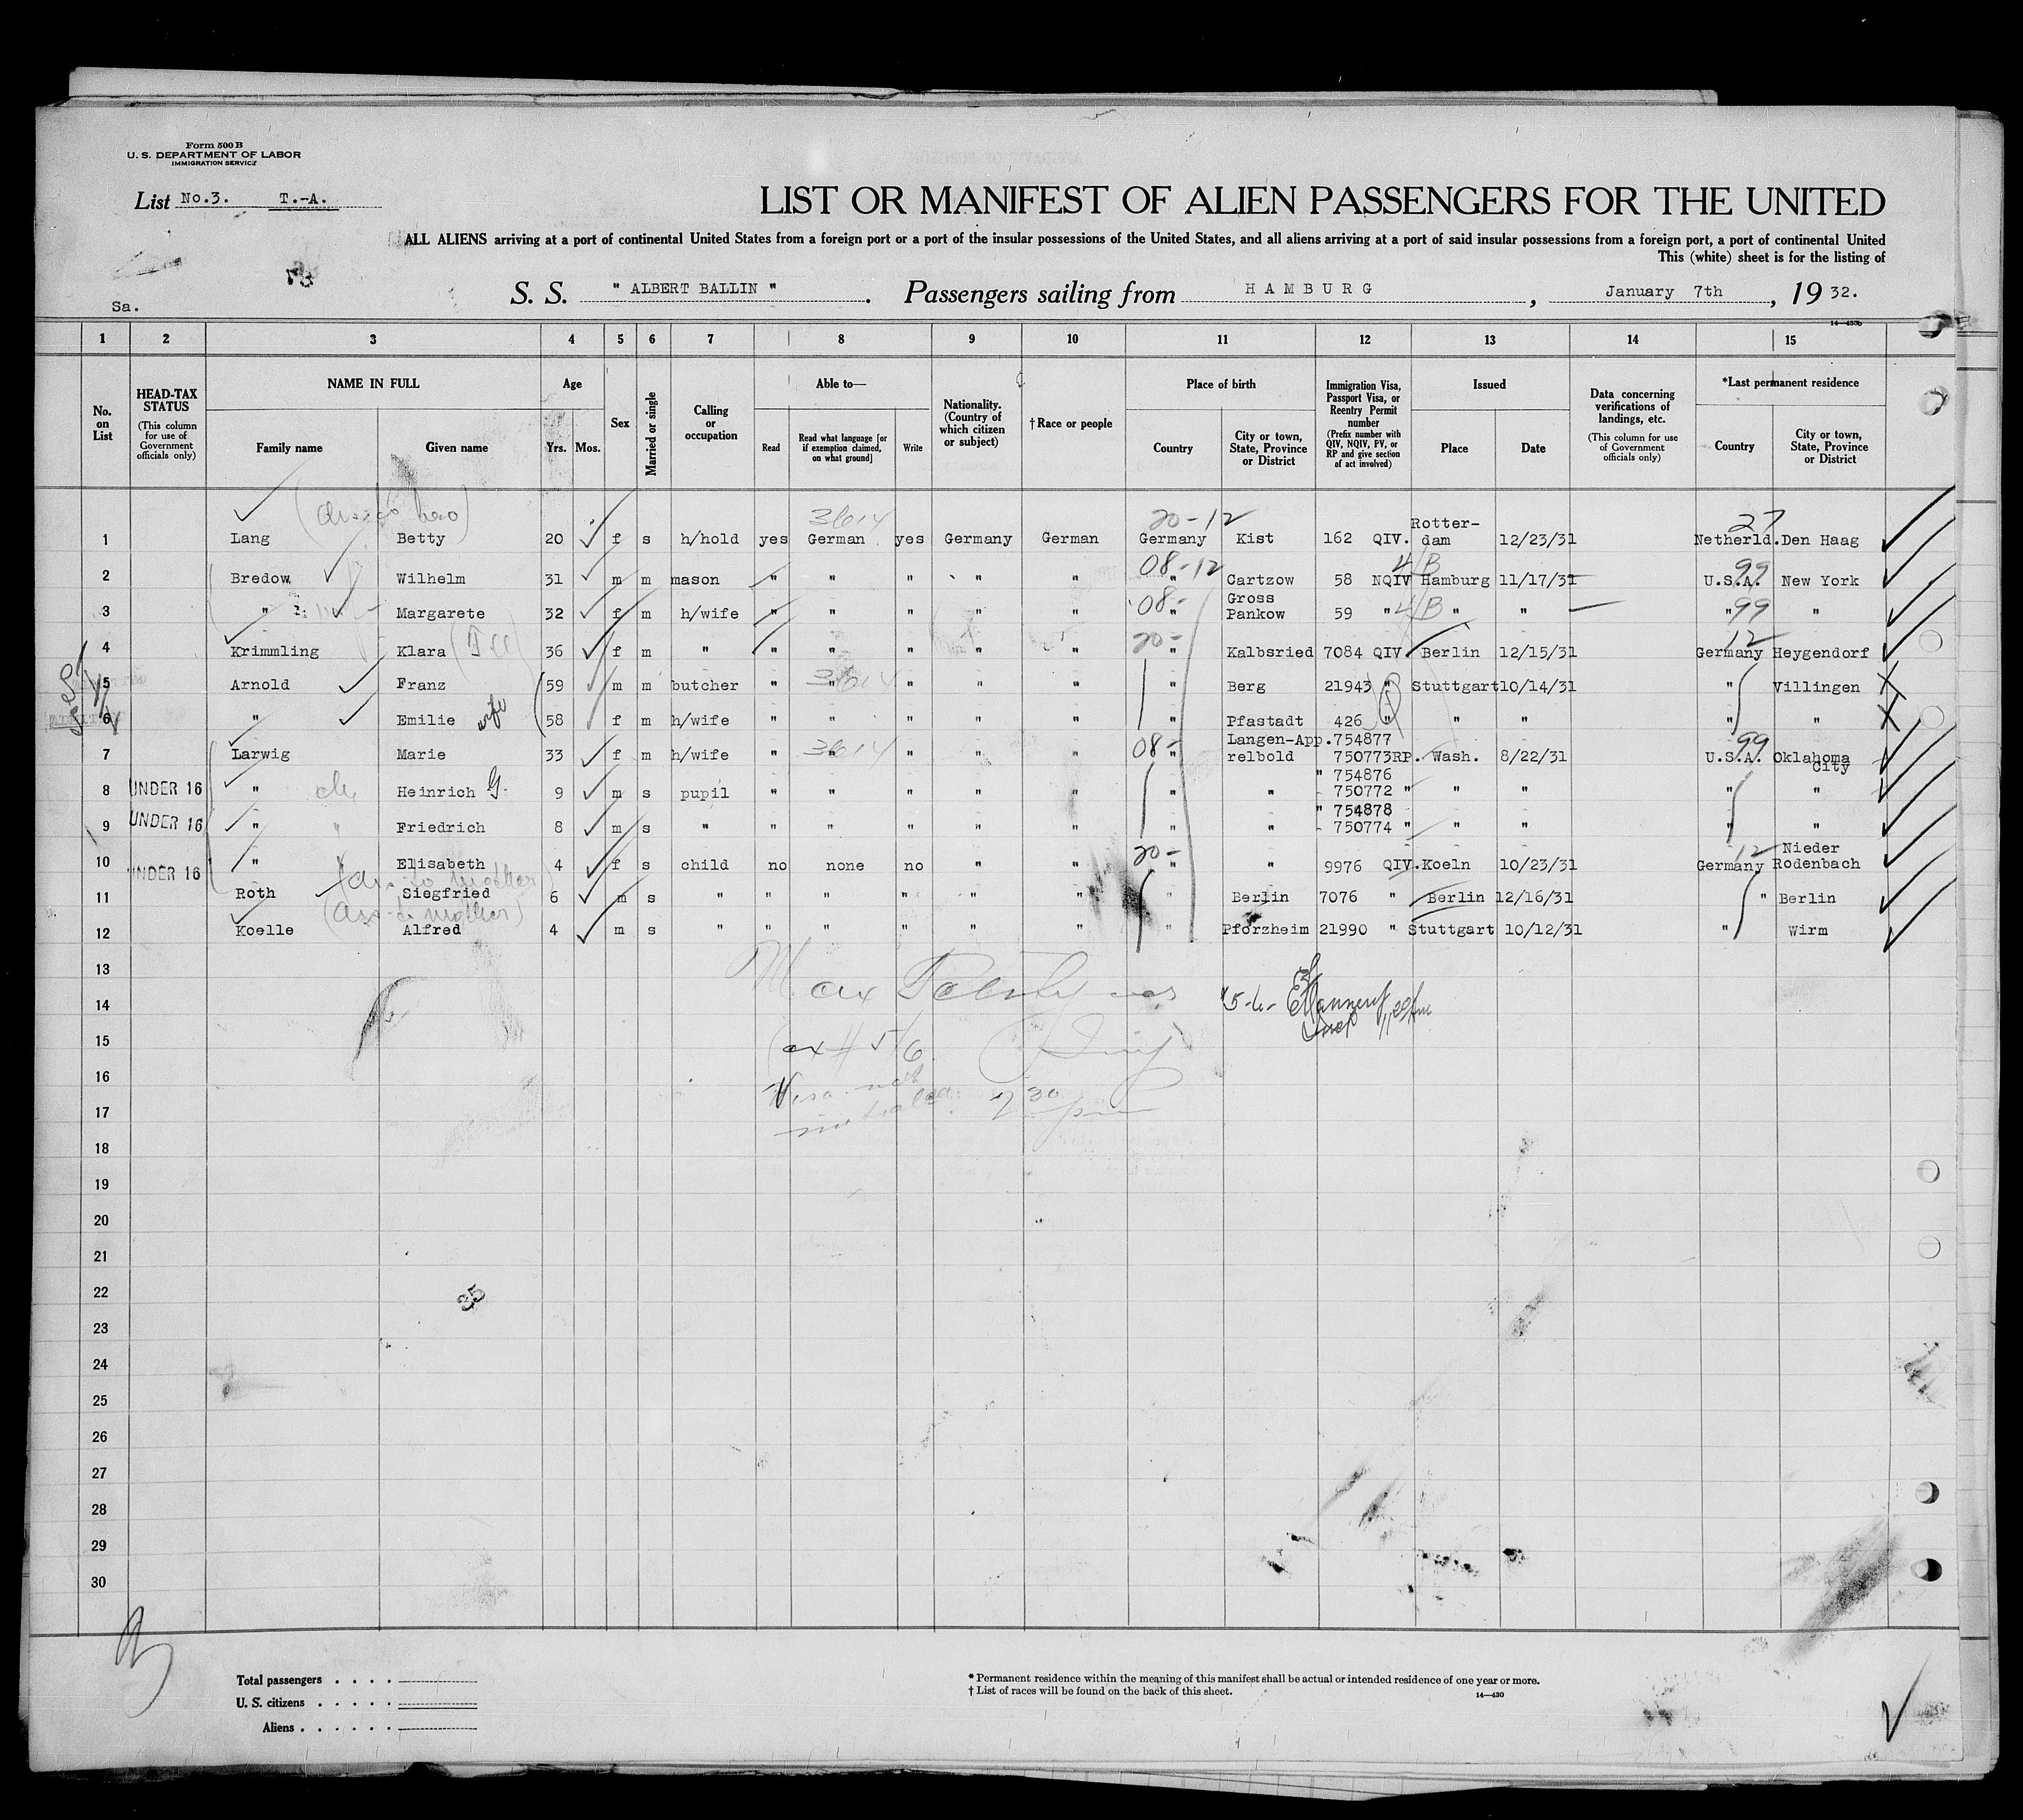 Form 500 B
U. S. DEPARTMENT OF LABOR
IMMIGRATION SERVICE
List No.3. T.-A.
LIST OR MANIFEST OF ALIEN PASSENGERS FOR THE UNITED
ALL ALIENS arriving at a port of continental United States from a foreign port or a port of the insular possessions of the United States, and all aliens arriving at a port of said insular possessions from a foreign port, a port of continental United
This (white) sheet is for the listing of
Sa.
S. S. " ALBERT BALLIN " . Passengers sailing from HAMBURG , January 7th , 19 32.
14—430b
1 2 3 4 5 6 7 8 9 10 11 12 13 14 15
No. on List
HEAD-TAX STATUS (This column for use of Government officials only)
NAME IN FULL
Family name Given name
Age
Yrs. Mos.
Sex
Married or single
Calling or occupation
Able to—
Read Read what language [or if exemption claimed, on what ground] Write
Nationality. (Country of which citizen or subject)
†Race or people
Place of birth
Country City or town, State, Province or District
Immigration Visa, Passport Visa, or Reentry Permit number (Prefix number with QIV, NQIV, PV, or RP and give section of act involved)
Issued
Place Date
Data concerning verifications of landings, etc. (This column for use of Government officials only)
*Last permanent residence
Country City or town, State, Province or District
3614 20-12 27
1 Lang Betty 20 f s h/hold yes German yes Germany German Germany Kist 162 QIV. Rotter-dam 12/23/31 Netherld. Den Haag
08-12 4/B 99
2 Bredow Wilhelm 31 m m mason " " " " " " Cartzow 58 NQIV Hamburg 11/17/31 U.S.A. New York
08- 4/B 99
3 " Margarete 32 f m h/wife " " " " " " Gross Pankow 59 " " " " "
20- 12
4 Krimmling Klara 36 f m " " " " " " " Kalbsried 7084 QIV Berlin 12/15/31 Germany Heygendorf
3614
5 Arnold Franz 59 m m butcher " " " " " " Berg 21943 " Stuttgart 10/14/31 " Villingen
6 " Emilie wife 58 f m h/wife " " " " " " Pfastadt 426 " " " " "
3614 08- 99
7 Larwig Marie 33 f m h/wife " " " " " " Langen-App. relbold 754877 750773RP. Wash. 8/22/31 U.S.A. Oklahoma City
8 UNDER 16 " Heinrich G. 9 m s pupil " " " " " " " " 754876 750772 " " " " "
9 UNDER 16 " Friedrich 8 m s " " " " " " " " " 754878 750774 " " " " "
20- 12
10 UNDER 16 " Elisabeth 4 f s child no none no " " " " 9976 QIV. Koeln 10/23/31 Germany Nieder Rodenbach
11 Roth Siegfried 6 m s " " " " " " " Berlin 7076 " Berlin 12/16/31 " Berlin
12 Koelle Alfred 4 m s " " " " " " " Pforzheim 21990 " Stuttgart 10/12/31 " Wirm
13
14
15
16
17
18
19
20
21
22
23
24
25
26
27
28
29
30
Max
5/6
Visa not
7 30
35
Total passengers
U. S. citizens
Aliens
* Permanent residence within the meaning of this manifest shall be actual or intended residence of one year or more.
† List of races will be found on the back of this sheet.
14—430